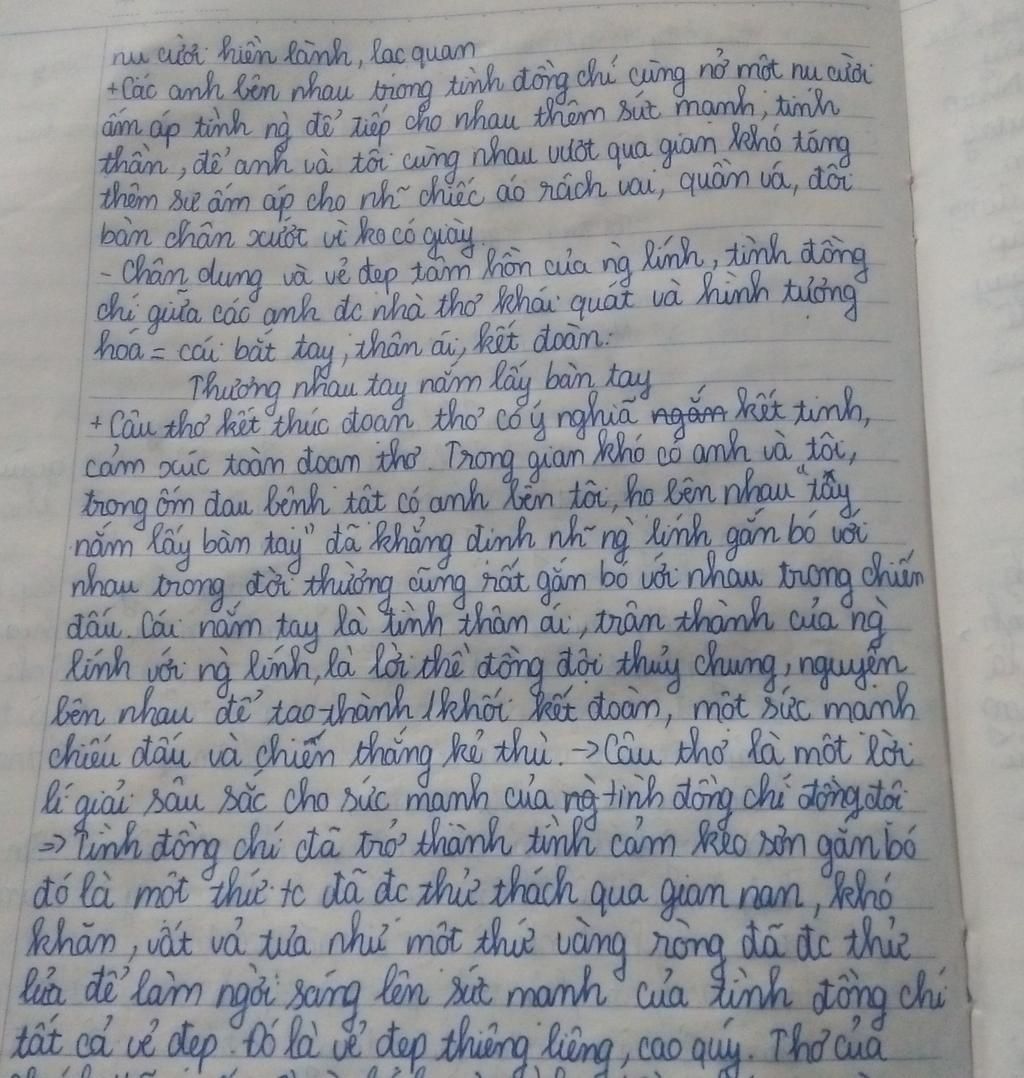 nụ cười hiền lành, lạc quan
+ Các anh bên nhau trong tình đồng chí cùng nở một nụ cười
ấm áp tình ng` để tiếp cho nhau thêm sức mạnh, tinh
thần, để anh và tôi cùng nhau vượt qua gian khó tăng
thêm sự ấm áp cho nh~ chiếc áo rách vai, quần vá, đôi
bàn chân xước vì ko có giày.
- Chân dung và vẻ đẹp tâm hồn của ng` lính, tình đồng
chí giữa các anh đc nhà thơ khái quát và hình tượng
hoá = cái bắt tay, thân ái, kết đoàn:
Thương nhau tay nắm lấy bàn tay
+ Câu thơ kết thúc đoạn thơ có ý nghĩa ngắn kết tinh,
cảm xúc toàn đoạn thơ. Trong gian khó có anh và tôi,
trong ốm đau bệnh tật có anh bên tôi, họ bên nhau "tây
nắm lấy bàn tay" đã khẳng định nh~ ng` lính gắn bó với
nhau trong đời thường cũng rất gắn bó với nhau trong chiến
đấu. Cái nắm tay là tình thân ái, trân thành của ng`
lính với ng` lính, là lời thề đồng đội thuỷ chung, nguyện
bên nhau để tạo thành 1 khối kết đoàn, một sức mạnh
chiếu đấu và chiến thắng kẻ thù. → Câu thơ là một lời
lí giải sâu sắc cho sức mạnh của ng` tình đồng chí đồng đội
=> Tình đồng chí đã trở thành tình cảm keo sơn gắn bó
đó là một thứ tc đã đc thử thách qua gian nan, khó
khăn, vất vả tựa như một thứ vàng ròng đã đc thử
lửa để làm ngời sáng lên sức mạnh của tình đồng chí
tất cả vẻ đẹp. Đó là vẻ đẹp thiêng liêng, cao quý. Thơ của